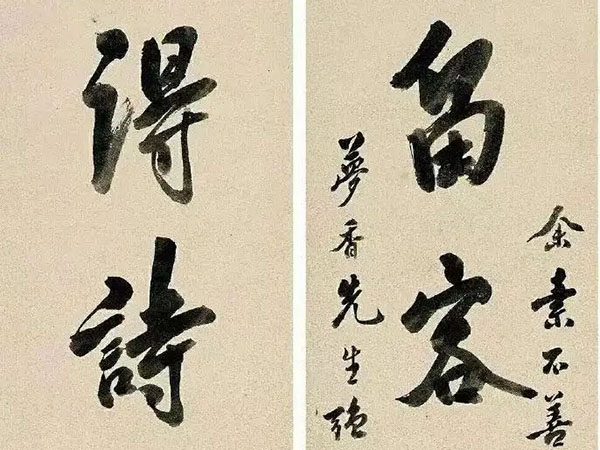 余素不善
留客
夢香先生強
得詩